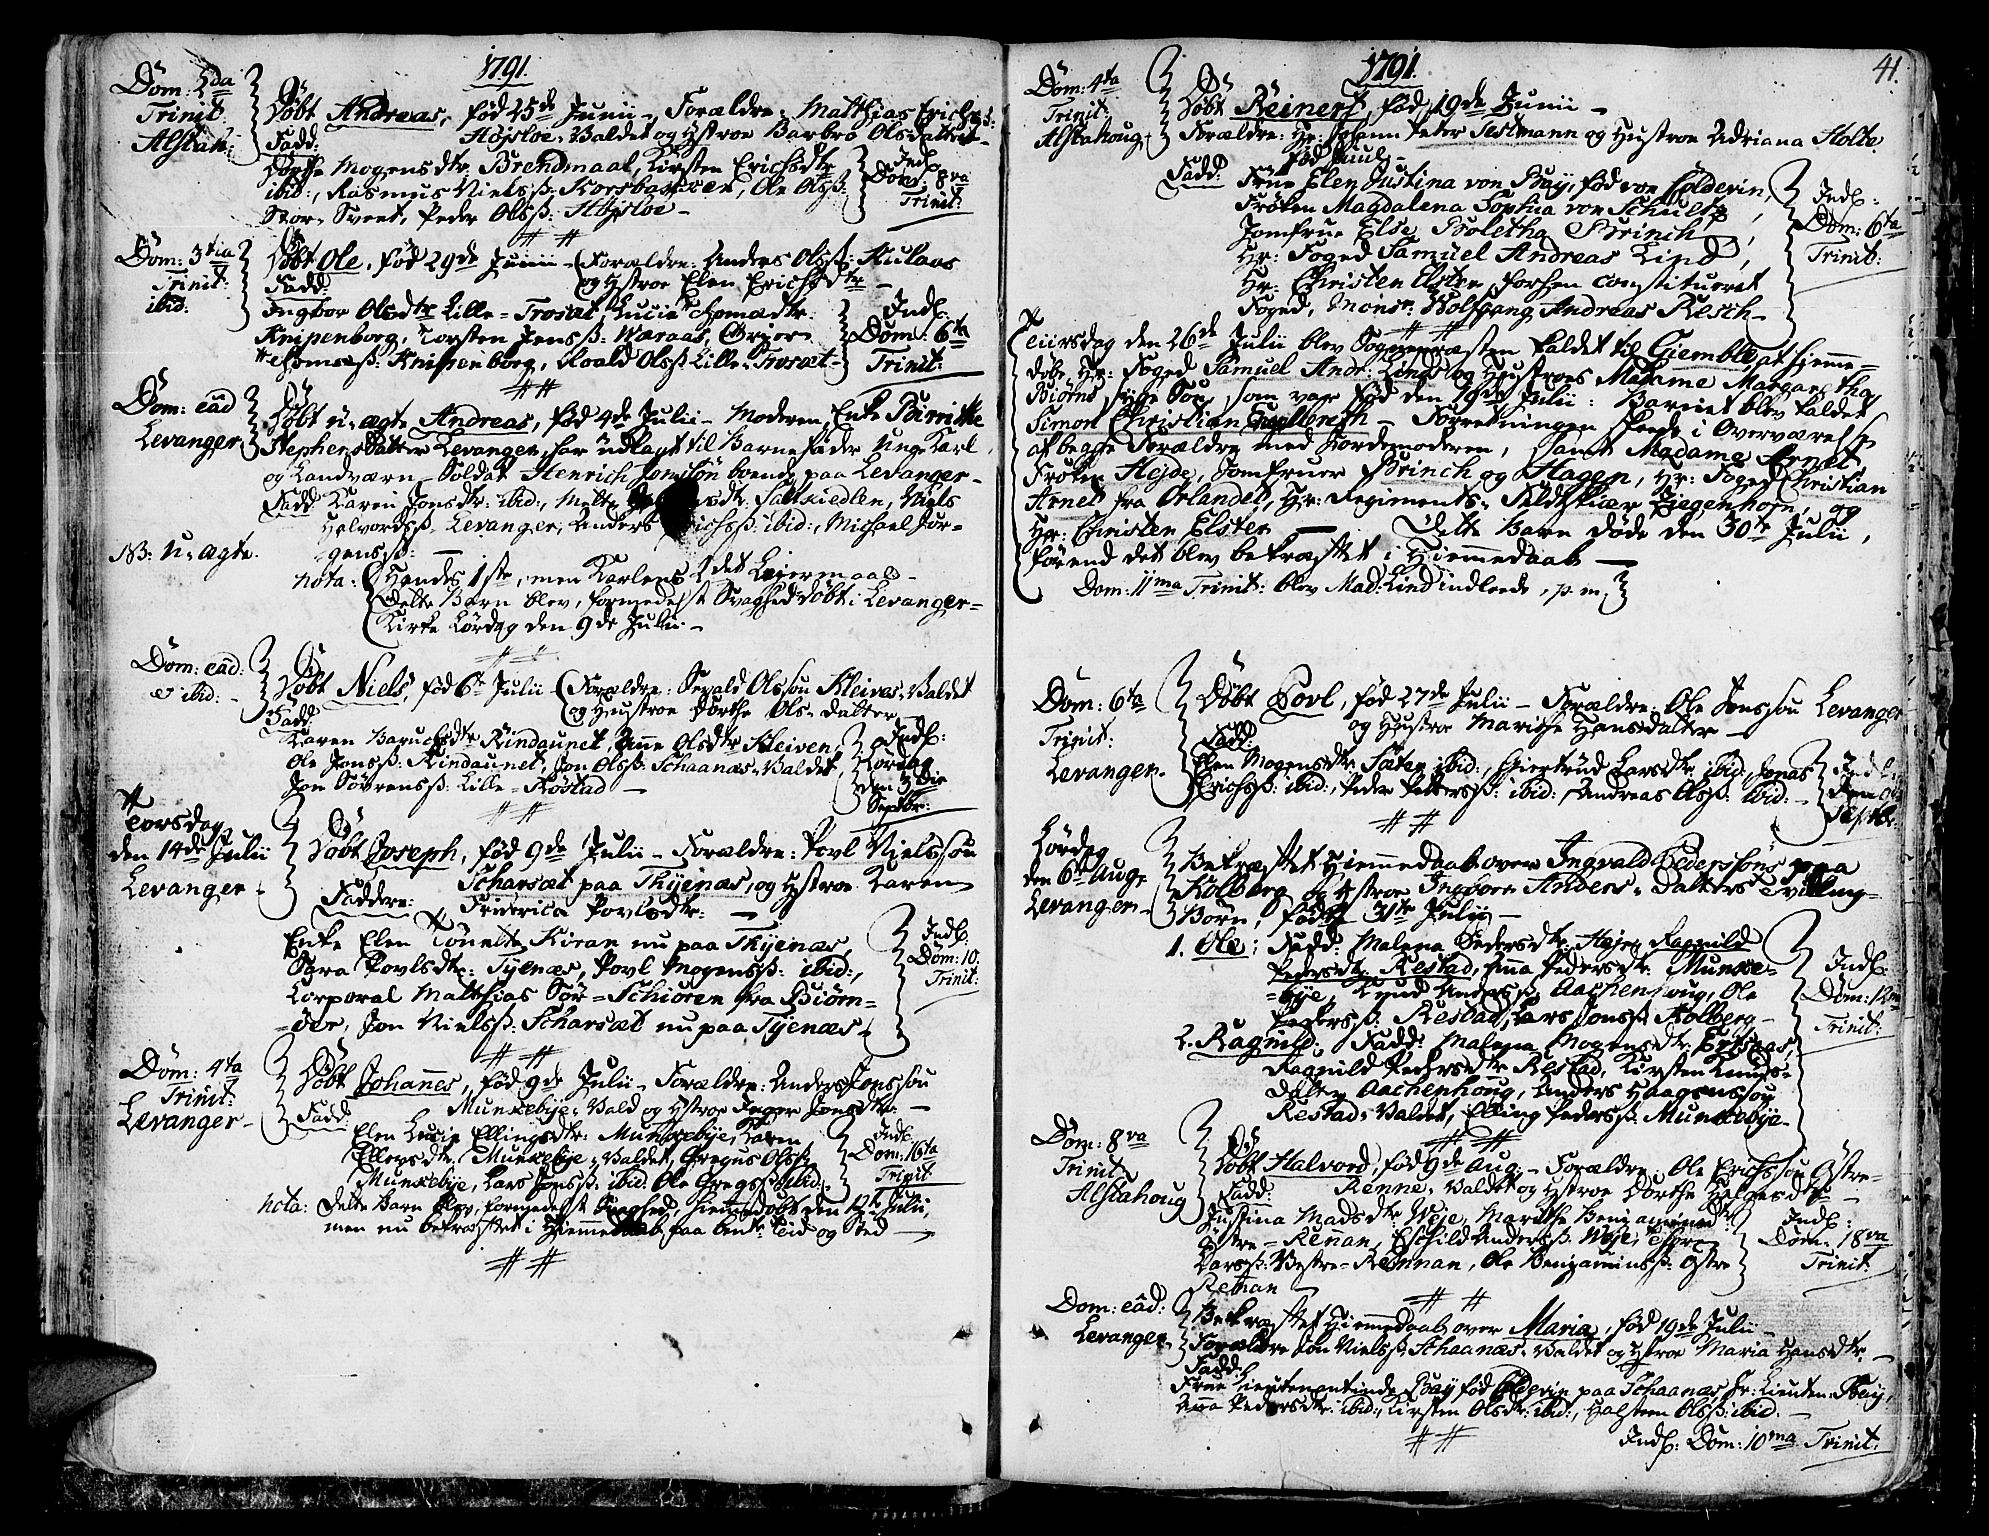 1791.
Dom: 2da
Trinit:
Alstah:
Døbt Andreas, fød 25de Junii – Forældre: Matthias Erichss:
Højsloe-Valdet og Hstroe Barbro Olsdatter –
Fadd:
Dorthe Mogensdtr: Brendmaal, Kirsten Erichsdtr
ibid:, Rasmus Nielsß: Korsbakken, Ole Olsß:
Stor-Sveet, Peder Olsß: Højsloe –
Indl:
Dom: 8va
Trinit:
Dom: 3tia
Trinit:
ibid:
Døbt Ole, fød 29de Junii – Forældre: Anders Olsß: Aulaas
og Hstroe Elen Erichsdtr –
Fadd:
Ingbor Olsdtr Lille-Trosæt, Lucie Thomædtr:
Knipenborg, Torsten Jensß: Waraas, Grger
Thomæß: Knipenborg, Roald Olsß: Lille-Trosæt –
Indl:
Dom: 6ta
Trinit:
Dom: eâd
Levanger
Døbt u-ægte Andreas, fød 4de Julii – Moderen, Enke Birritte
Stephensdatter Levanger, har udlagt til Barnefader Unge Karl
og Landværn-Soldat Henrich Jonssøn boende paa Levanger –
Fadd: Karen Jonsdtr: ibid:, Mette dtr: Saltkiedlen, Niels
Halvordsß: Levanger, Anders Erichsß: ibid:, Michael Jør-
gensß: –
NB: U-ægte.
nota: Hendes 1ste, men Karlens 2det Leiermaal –
Dette Barn blev, formedelst Svaghed døbt i Levanger-
Kirke Lørdag den 9de Julii –
Dom: eâd:
& ibid: –
Døbt Niels, fød 6te Julii – Forældre: Sevald Olssøn Kleivas-Valdet
og Hustroe Dorthe Ols-datter –
Fadd:
Karen Baruchsdtr Rindaunet, Anne Olsdtr Kleiven,
Ole Jonsß: Rindaunet, Jon Olsß: Schaanæs-Valdet,
Jon Sørensß: Lille-Røstad –
Indl:
Lørdag
den 3die
Septbr:
Torsdag
den 14de Julii
Levanger
Døbt Joseph, fød 9de Julii – Forældre: Povl Nielssøn
Scharsæt paa Thyenæs, og Hstroe Karen
Friderica Povlsdtr: –
Faddere:
Enke Elen Kiran nu paa Thyenæs,
Sara Povlsdtr: Tyenæs, Povl Mogensß: ibid:,
Corporal Matthias Sør-Schiøren fra Biørn-
øer, Jon Nielsß: Scharsæt nu paa Tyenæs –
Indl:
Dom: 10.
Trinit:
Dom: 4ta
Trinit:
Levanger –
Døbt Johannes, fød 9de Julii – Forældre: Anders Jonssøn
Munkebye-Vald og Hstroe Inger Jonsdtr: –
Fadd:
Elen Lucie Ellingsdtr: Munkebye, Karen
Ellevsdtr. Munkebye-Valdet, Gregus Olsß:
Munkebye, Lars Jonsß: ibid: Ole Gregsß: ibid: –
Indl:
Dom: 16ta
Trinit
nota: Dette Barn blev, formedelst Svaghed, hiemmedøbt den 12te Julii,
men nu bekræftet i Hiemmedaab paa bente Tid og Sted –
1791.
41.
Dom: 4ta
Trinit:
Alstahoug
Døbt Reinert, fød 19de Junii –
Forældre: Hr: Johann Peter Sestmann og Hustroe Adriana Holte
Fadd:
Frue Elen Justina von Bay, fød von Coldevin,
Frøken Magdalena Sophia von Schultz,
Jomfrue Else Boletha Brinch,
Hr: Foged Samuel Andreas Lind,
Hr: Christen Elster forhen constitueret
Foged, Monsr: Wolfgang Andreas Resch –
Indl:
Dom: 6ta
Trinit:
Tiirsdag den 26de Julii blev Sognepræsten kaldet til Giemble, at hjemme-
døbe Hr: Foged Samuel Andr: Linds og Hustroes Madame Margaretha
Biørns syge Søn, som var fød den 19de Julii: Barnet blev kaldet
Simon Christian – Forretningen skede i Overværelse
af begge Forældre med Jordemoderen, samt Madame Arnet,
Frøken Hejde, Jomfruer Brinch og Hagen, Hr: Foged Christian
Arnet fra Ørlandet, Hr: Regiments-Feldskiær Ziegenhorn, og
Hr: Christen Elster – Dette Barn døde den 30te Julii,
førend det blev bekræftet i Hiemmedaab –
Dom: 11ma Trinit: blev Mad: Lind indleede, p. m.
Dom: 6ta
Trinit:
Levanger –
Døbt Povl, fød 27de Julii – Forældre: Ole Jonssøn Levanger
og Hustroe Marithe Hansdatter –
Fadd:
Elen Mogensdtr: Sæter ibid:, Giertrud Larsdtr: ibid:, Jonas
Erichsß: ibid:, Peder Pettersß: ibid:, Andreas Olsß: ibid: –
Indl:
Septbr:
Lørdag
den 6te Aug:
Levanger –
Bekræftet Hiemmedaab over Ingvald Pederssøns paa
Kolberg og Hstroe Ingbor Anders-datters Tvilling-
Børn, fødte 31te Julii –
1. Ole: Fadd: Malena Pedersdtr: Heje, Ragnild
Pedersdtr: Restad, Anna Pedersdtr: Munke-
bye, Knud Andersß: Aachenhoug, Ole
Pedersß: Restad, Lars Jonsß: Kolberg –
2. Ragnild. Fadd: Malena Mogensdtr: Ertsaas,
Ragnild Pedersdtr: Restad, Kirsten Knuds-
datter Aachenhoug, Anders Haagenssøn
Restad-Valdet, Elling Pedersß: Munkebye –
Indl:
Dom: 12ma
Trinit:
Dom: 8va
Trinit:
Alstahoug
Døbt Halvord, fød 9de Aug: – Forældre: Ole Erichssøn Østre-
Renne-Valdet og Hstroe Dorthe Helgesdtr –
Fadd:
Justina Madsdtr: Weje, Marithe Benjaminsdtr:
Østre-Renan, Eschild Andersß: Weje, Thore
Larsß: Vestre-Rennan, Ole Benjaminsß: Østre
Rennan
Indl:
Dom: 18va
Trinit:
Dom: eâd:
Levanger
Bekræftet Hiemmedaab over Maria, fød 19de Julii –
Forældre Jon Nielsß: Schaanæs-Valdet og Hstroe Maria Hansdtr. –
Fadd:
Frue Lieutenantinde Bay fød Coldevin paa Schaanæs, Hr: Lieuten: Bay,
Anna Pedersdtr: ibid:, Kirsten Olsdtr: ibid:, Halsteen Olsß: ibid. –
Indl: Dom: 10ma Trinit: